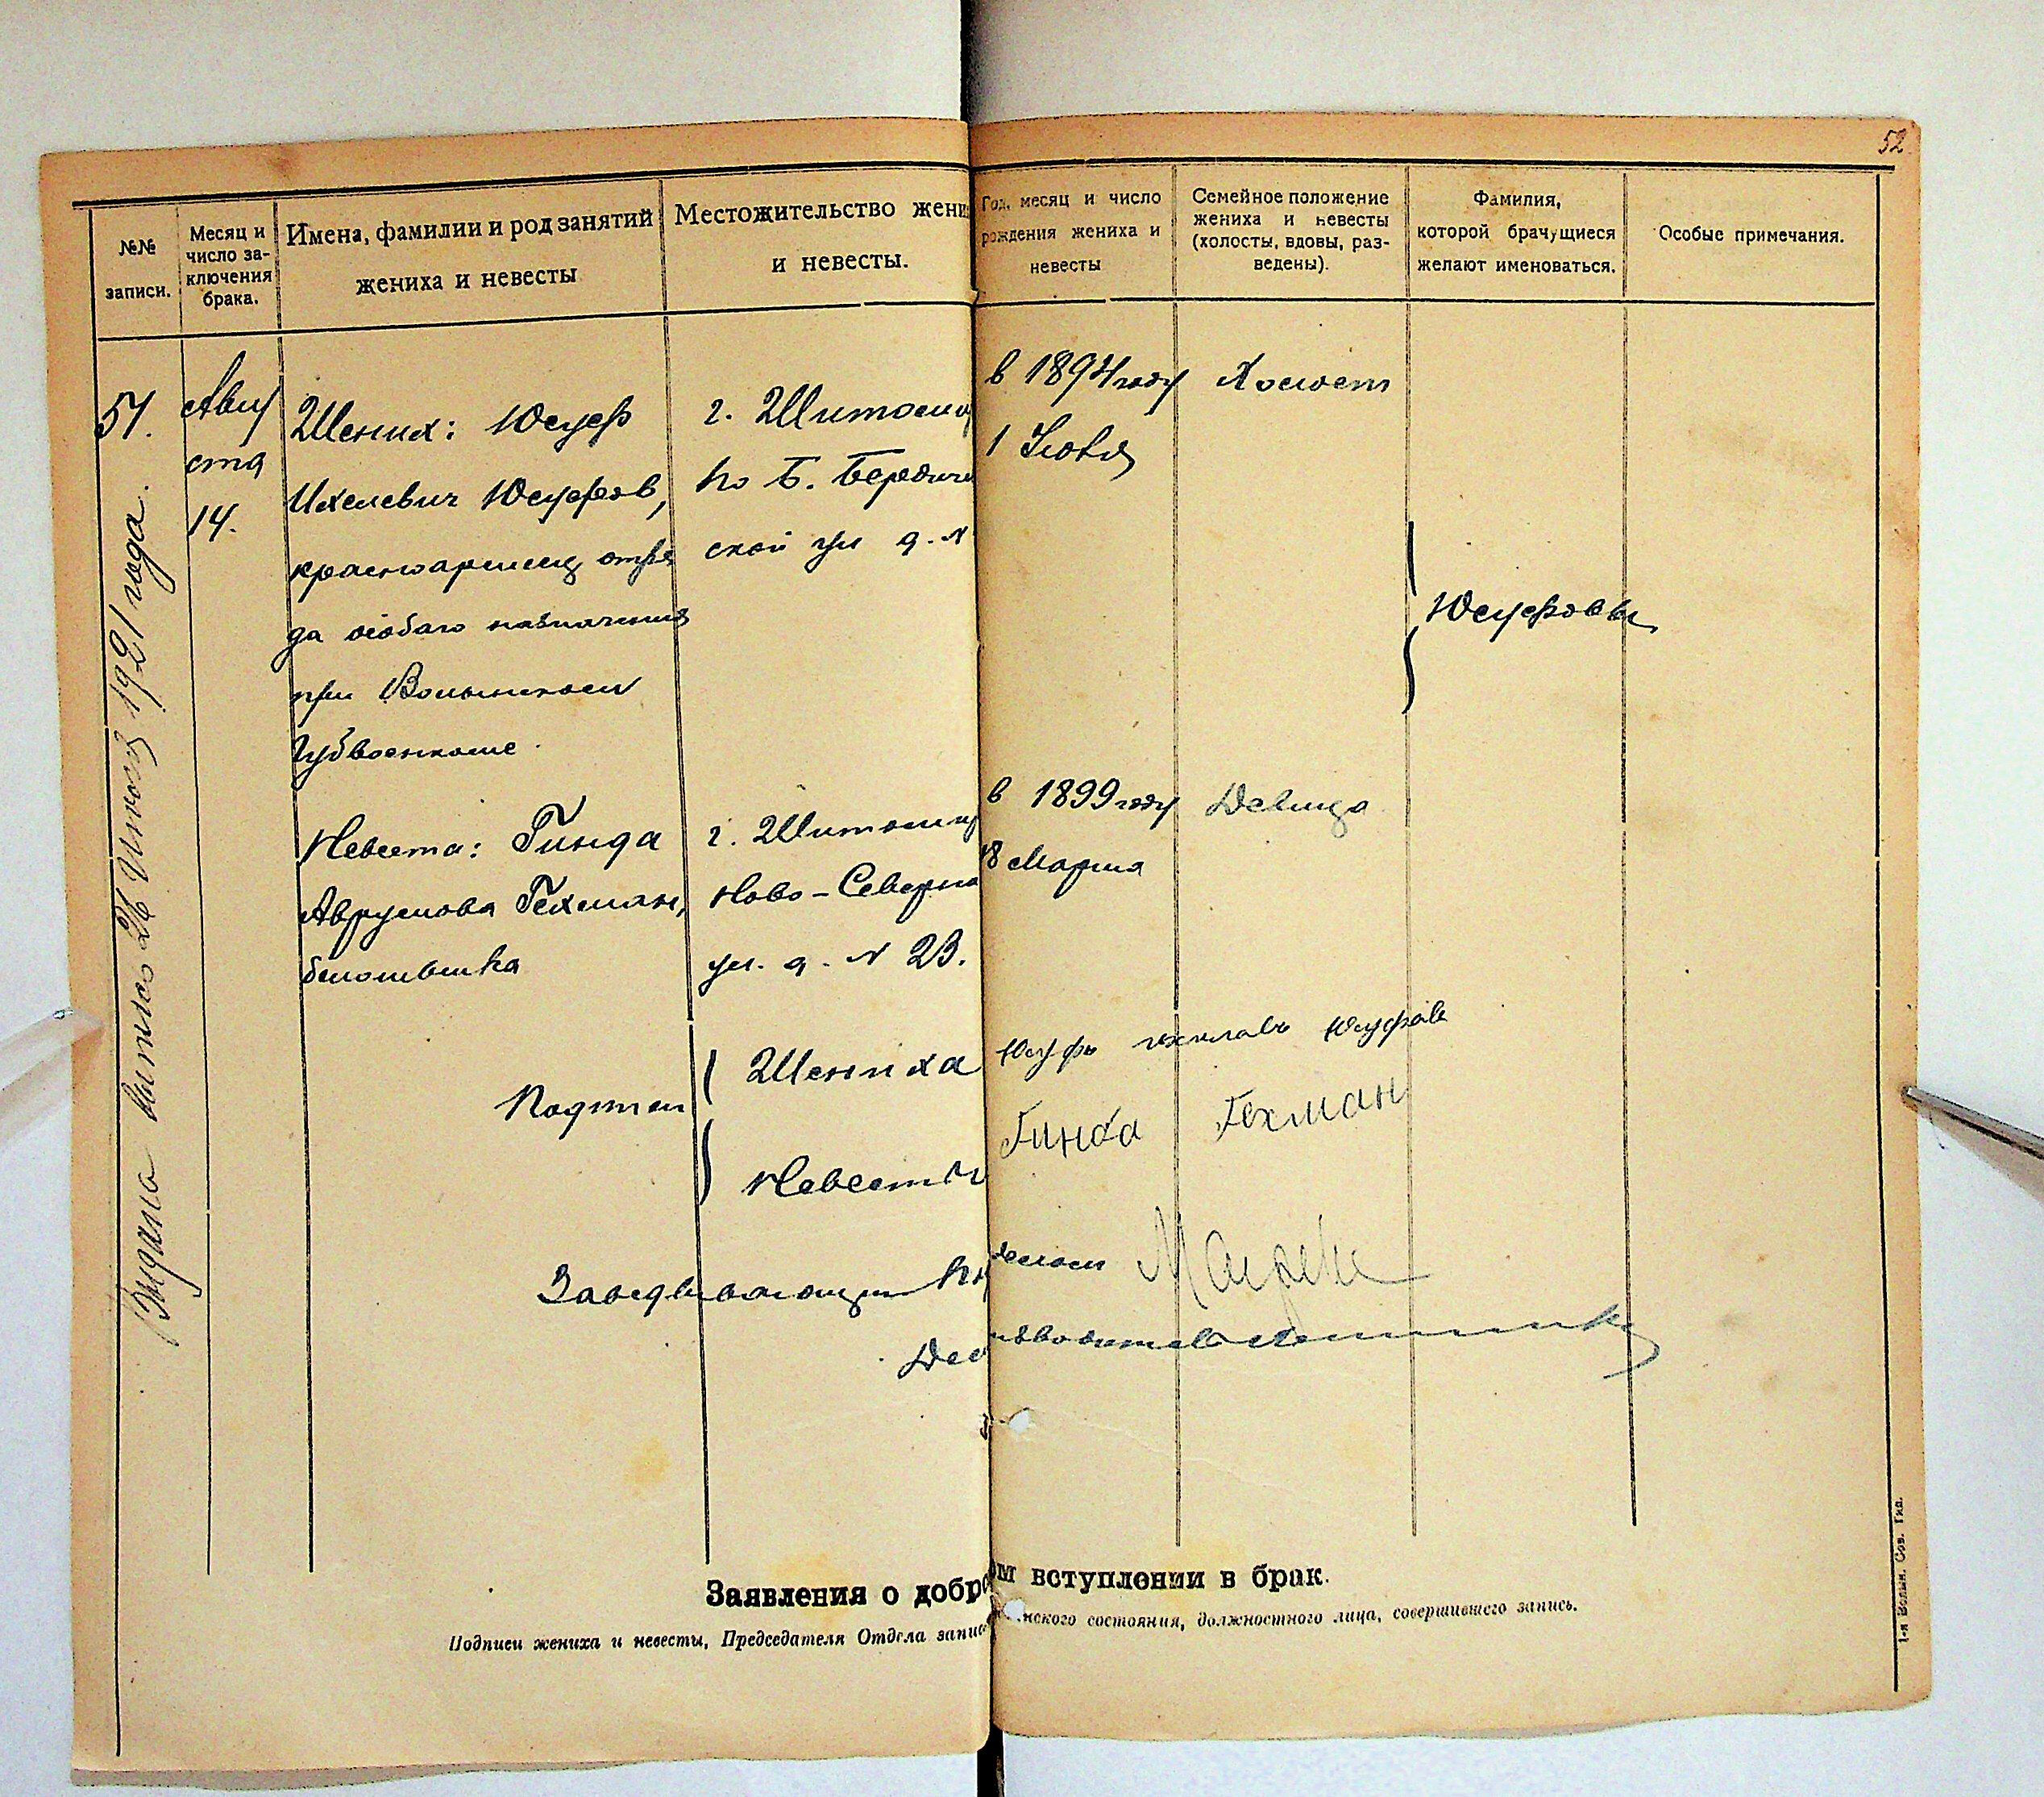 52
№№ записи.
Месяц и число заключения брака.
Имена, фамилии и род занятий жениха и невесты
Местожительство жени
и невесты.
Год, месяц и число рождения жениха и невесты
Семейное положение жениха и невесты (холосты, вдовы, разведены).
Фамилия, которой брачущиеся желают именоваться.
Особые примечания.
51.
Авгу
ста
14.
Жених: Юсуф
Ихелевич Юсуфов,
красноармеец отря
да особаго назначения
при Волынском
Губвоенкоме.
г. Житомир
по Б. Бердичев
ской ул. д. N
в 1894 году
1 Июля
Холост
Юсуфовы
Невеста: Гинда
Аврумова Гехман,
белошвейка
г. Житомир
Ново-Северна
ул. д. N 23.
в 1899 году
18 Марта
Девица
Подписи
Жениха
Юсуф Юсуфов
Невесты
Гинда Гехман
Заведывающий
Выдана 1921 года.
Заявления о добро
ом вступлении в брак.
Подписи жениха и невесты, Председателя Отдела запис
нского состояния, должностного лица, совершившего запись.
1-я Волын. Сов. Тип.